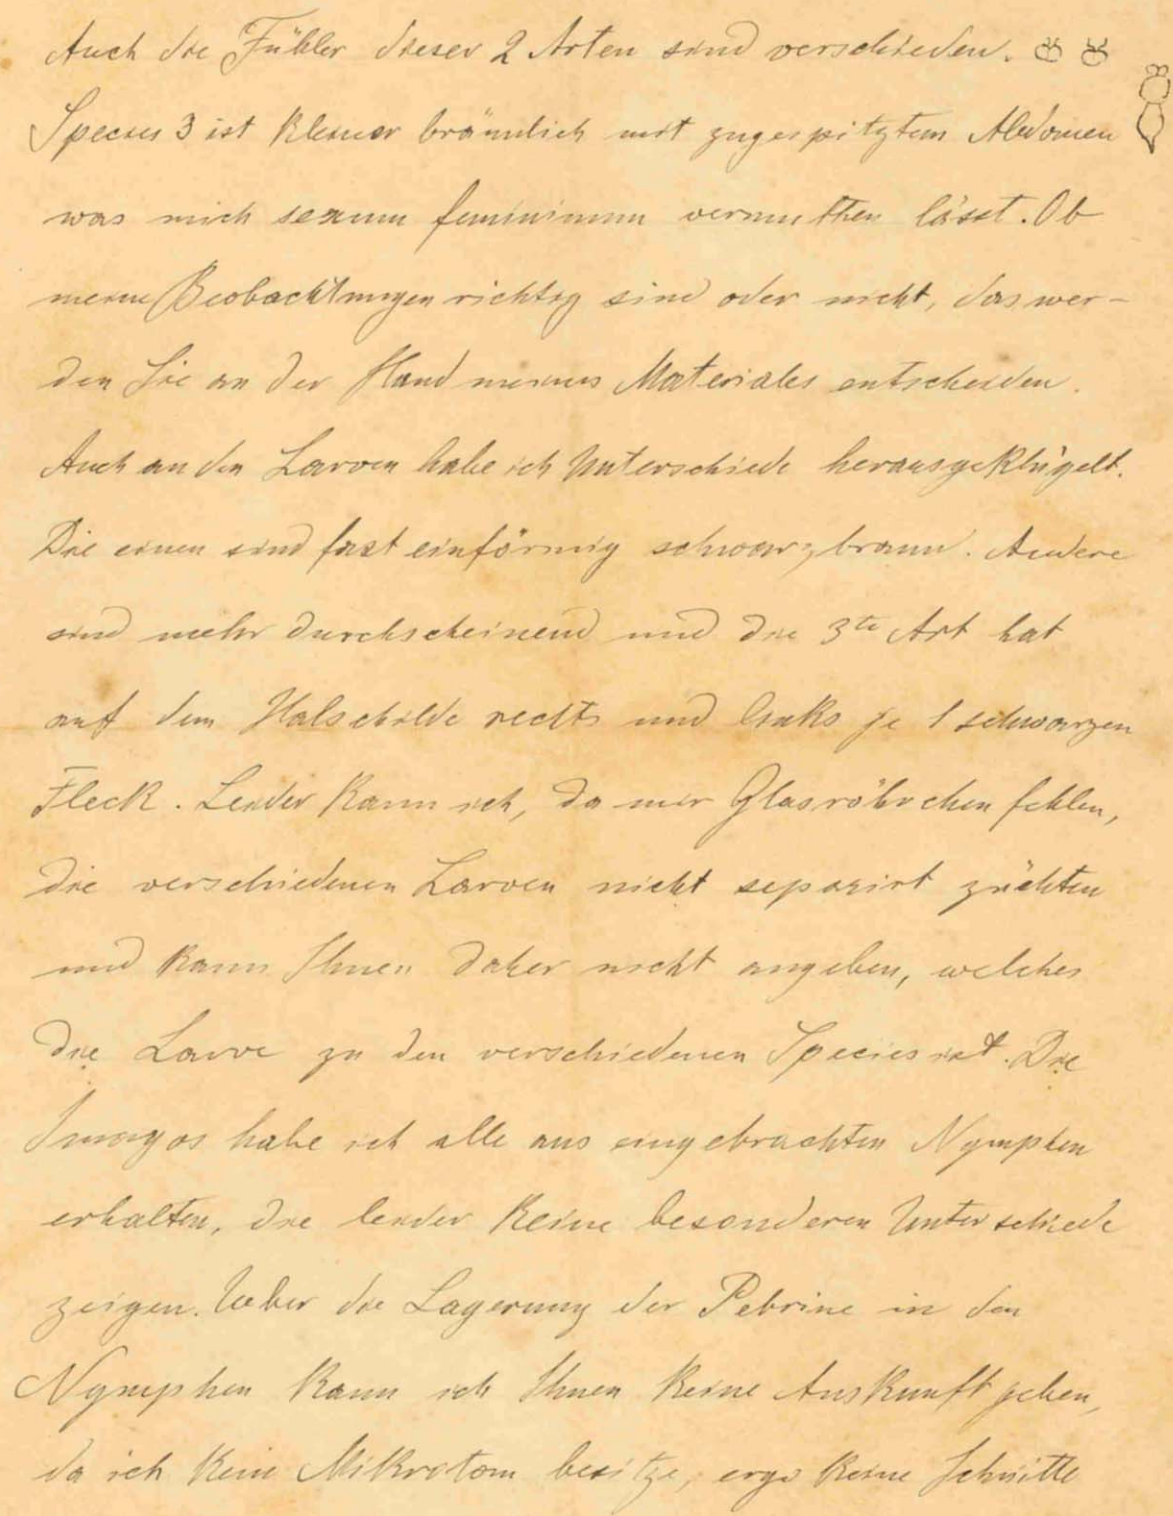 Auch die Fühler dieser 2 Arten sind verschieden.
Species 3 ist kleiner bräunlich mit zugespitztem Abdomen
was mich sexum femininum vermuthen lässt. Ob
meine Beobachtungen richtig sind oder nicht, das wer-
den Sie an der Hand meines Materiales entscheiden.
Auch an den Larven habe ich Unterschiede herausgeklügelt.
Die einen sind fast einförmig schwarzbraun. Andere
sind mehr durchscheinend und die 3te Art hat
auf dem Halsschilde rechts und links je 1 schwarzen
Fleck. Leider kann ich, da mir Glasröhrchen fehlen,
die verschiedenen Larven nicht separirt züchten
und kann Ihnen daher nicht angeben, welches
die Larve zu den verschiedenen Species ist. Die
Imagos habe ich alle aus eingebrachten Nymphen
erhalten, die leider keine besonderen Unterschiede
zeigen. Ueber die Lagerung der Pebrine in den
Nymphen kann ich Ihnen keine Auskunft geben,
da ich kein Mikrotom besitze, ergo keine Schnitte